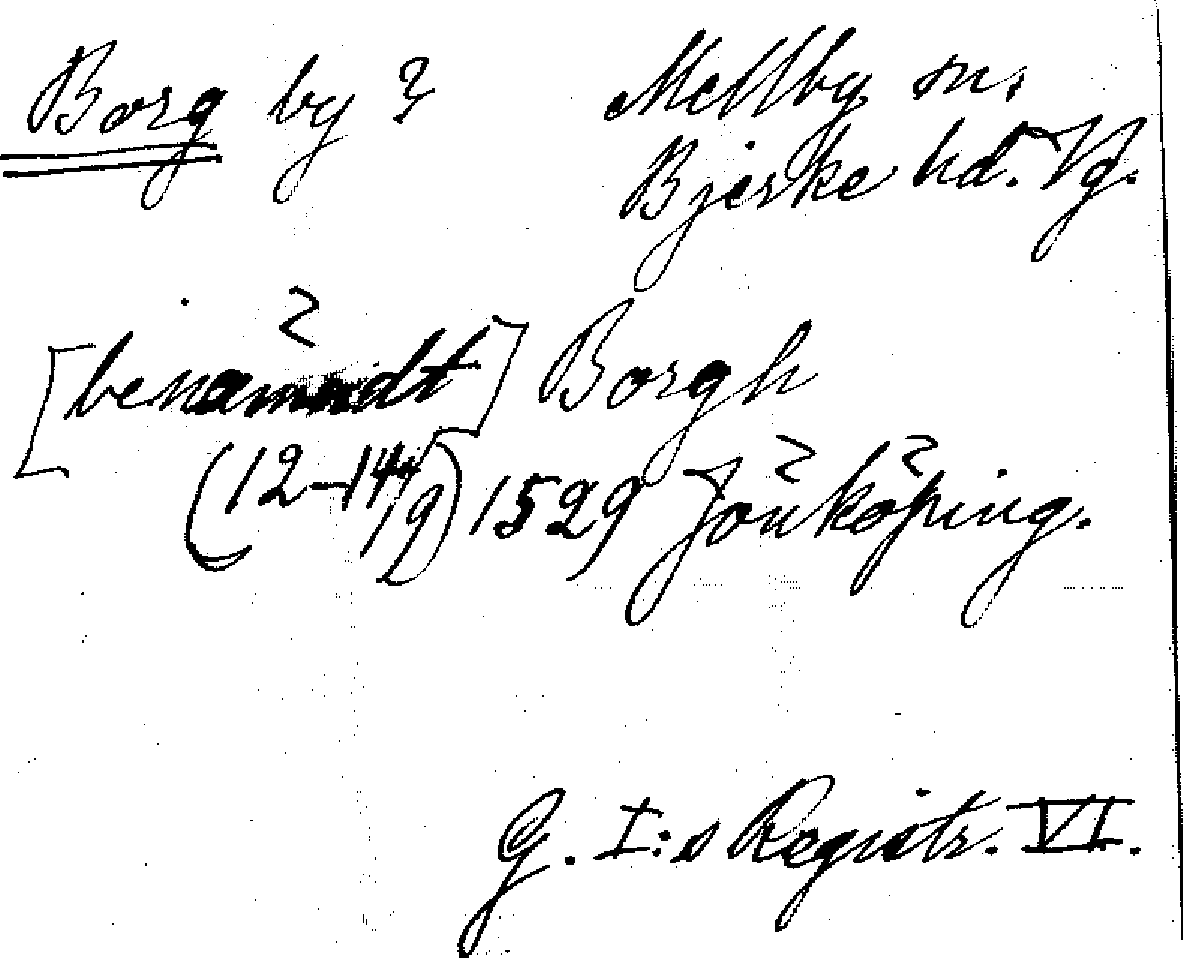 Borg by ? Mellby sn.
Bjerke hd. Vg.
[benämndt] Borgh
(12-14/9) 1529 Jönköping.
G. I:s Registr. VI.